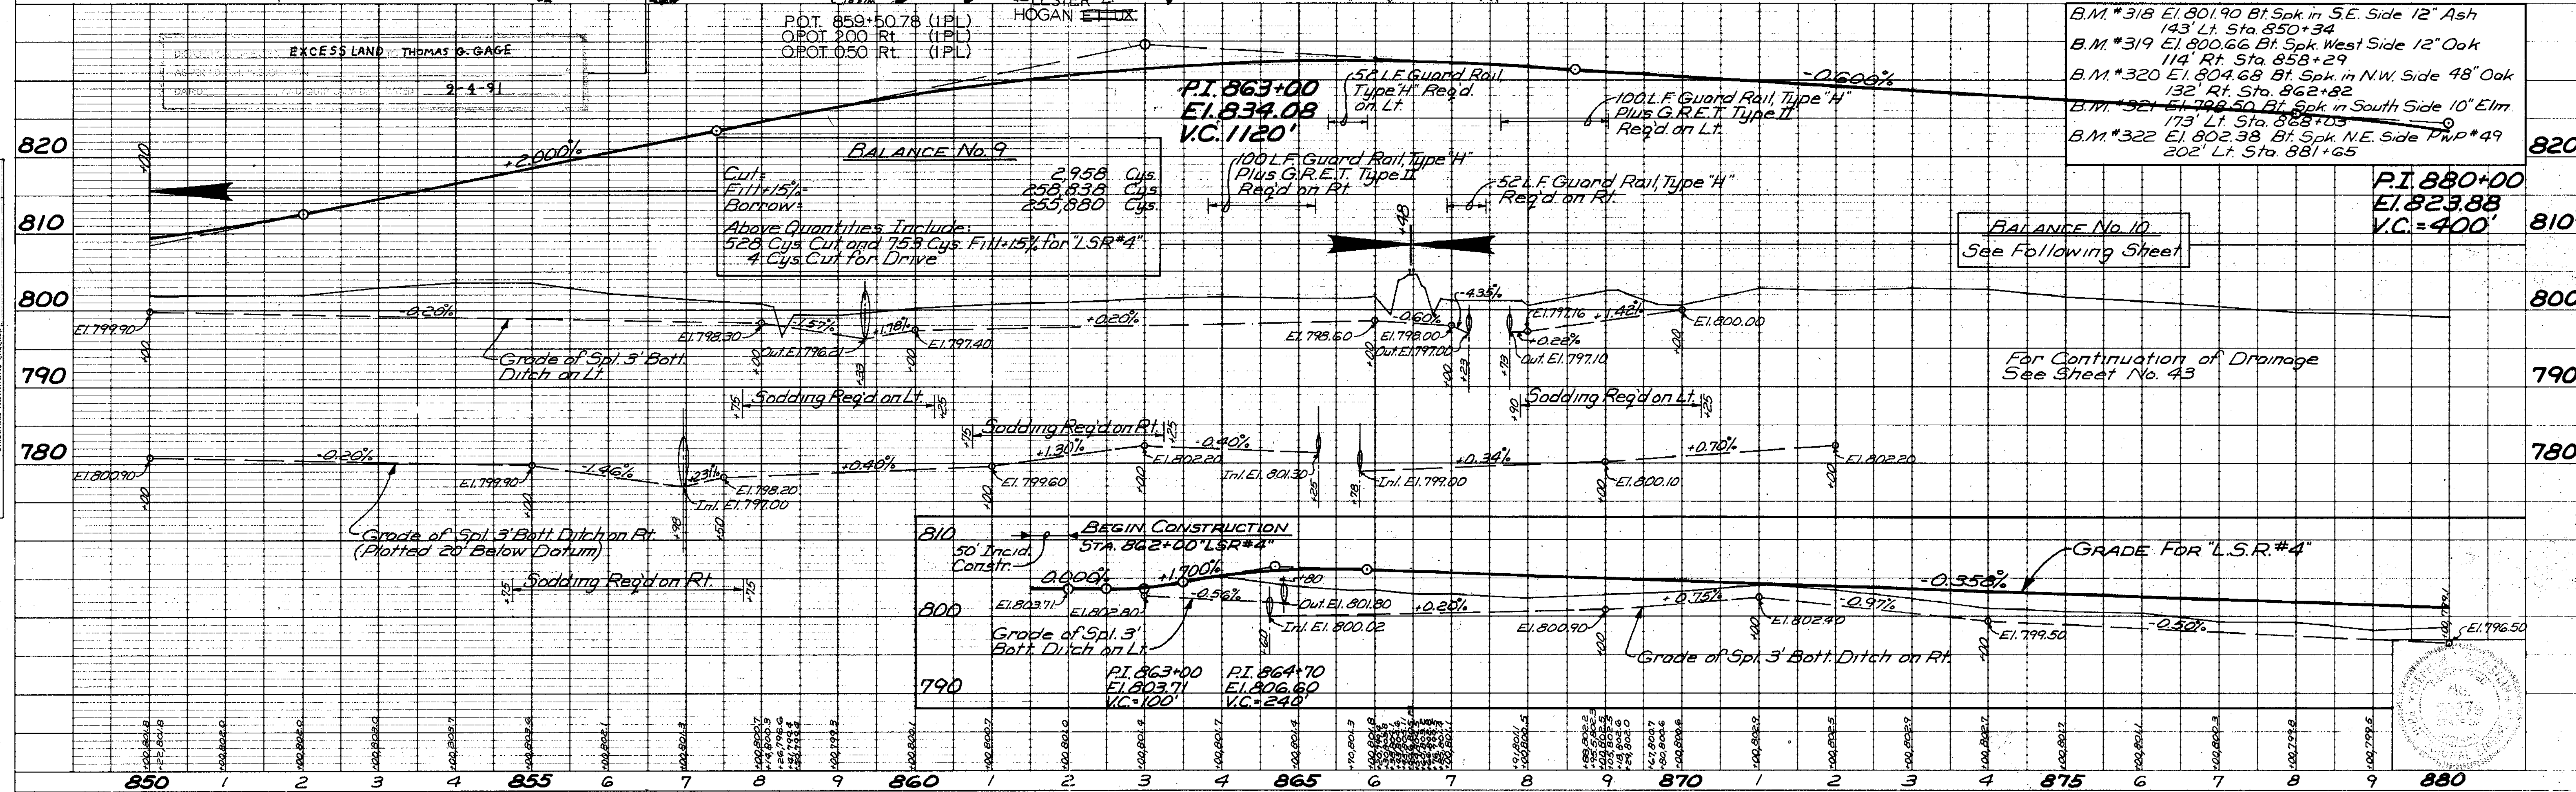 HOGAN ET UX.
P.O.T. 859+50.78 (1PL)
O.P.O.T. 2.00 Rt. (1PL)
O.P.O.T. 0.50 Rt. (1PL)
EXCESS LAND THOMAS G. GAGE
2-4-91
B.M. #318 El. 801.90 Bt. Spk. in S.E. Side 12" Ash
143' Lt. Sta. 850+34
B.M. #319 El. 800.66 Bt. Spk. West Side 12" Oak
114' Rt. Sta. 858+29
B.M. #320 El. 804.68 Bt. Spk. in N.W. Side 48" Oak
132' Rt. Sta. 862+82
B.M. #321 El. 798.50 Bt. Spk. in South Side 10" Elm.
173' Lt. Sta. 868+03
B.M. #322 El. 802.38 Bt. Spk. N.E. Side PwP #49
202' Lt. Sta. 881+65
+2.000%
-0.600%
P.I. 863+00
El. 834.08
V.C. 1120'
52 L.F. Guard Rail,
Type "H" Req'd.
on Lt.
100 L.F. Guard Rail, Type "H"
Plus G.R.E.T. Type II
Req'd on Lt.
100 L.F. Guard Rail, Type "H"
Plus G.R.E.T. Type II
Req'd on Rt.
52 L.F. Guard Rail, Type "H"
Req'd. on Rt.
P.I. 880+00
El. 823.88
V.C. = 400'
BALANCE No. 9
Cut= 2,958 Cys.
Fill+15%= 258,838 Cys.
Borrow= 255,880 Cys.
Above Quantities Include:
528 Cys. Cut and 753 Cys. Fill+15% for "LSR#4"
4 Cys. Cut for Drive
BALANCE No. 10
See Following Sheet
820
810
800
790
780
820
810
800
790
780
+00
+48
El. 799.90
+00
-0.20%
Grade of Spl. 3' Bott.
Ditch on Lt.
El. 798.30
+00
-1.57%
Out. El. 796.21
+39
+1.78%
El. 797.40
+00
+0.20%
El. 798.60
+00
-0.60%
El. 798.00
+00
-4.35%
Out. El. 797.00
+23
+73
Out. El. 797.10
+0.22%
El. 797.16
+1.42%
El. 800.00
+00
For Continuation of Drainage
See Sheet No. 43
+75 Sodding Req'd on Lt. +25
+90 Sodding Req'd on Lt. +25
+75 Sodding Req'd on Rt. +25
El. 800.90
+00
-0.20%
El. 799.90
+00
-1.46%
+98
Inl. El. 797.00
+.231%
El. 798.20
+50
+0.40%
El. 799.60
+00
+1.30%
El. 802.20
+00
-0.40%
Inl. El. 801.30
+25
+78
Inl. El. 799.00
+0.34%
El. 800.10
+00
+0.70%
El. 802.20
+00
Grade of Spl. 3' Bott. Ditch on Rt.
(Plotted 20' Below Datum)
+75 Sodding Req'd on Rt. +75
810
800
790
BEGIN CONSTRUCTION
STA. 862+00 "LSR#4"
50' Incid.
Constr.
0.000%
+1.700%
El. 803.71
El. 802.80
-0.56%
+80
Out. El. 801.80
Inl. El. 800.02
+60
+0.20%
El. 800.90
+00
+0.75%
El. 802.40
+00
-0.97%
El. 799.50
+00
-0.50%
El. 796.50
-0.358%
GRADE FOR "L.S.R.#4"
Grade of Spl. 3'
Bott. Ditch on Lt.
Grade of Spl. 3' Bott. Ditch on Rt.
P.I. 863+00
El. 803.71
V.C. = 100'
P.I. 864+70
El. 806.60
V.C. = 240'
850 1 2 3 4 855 6 7 8 9 860 1 2 3 4 865 6 7 8 9 870 1 2 3 4 875 6 7 8 9 880